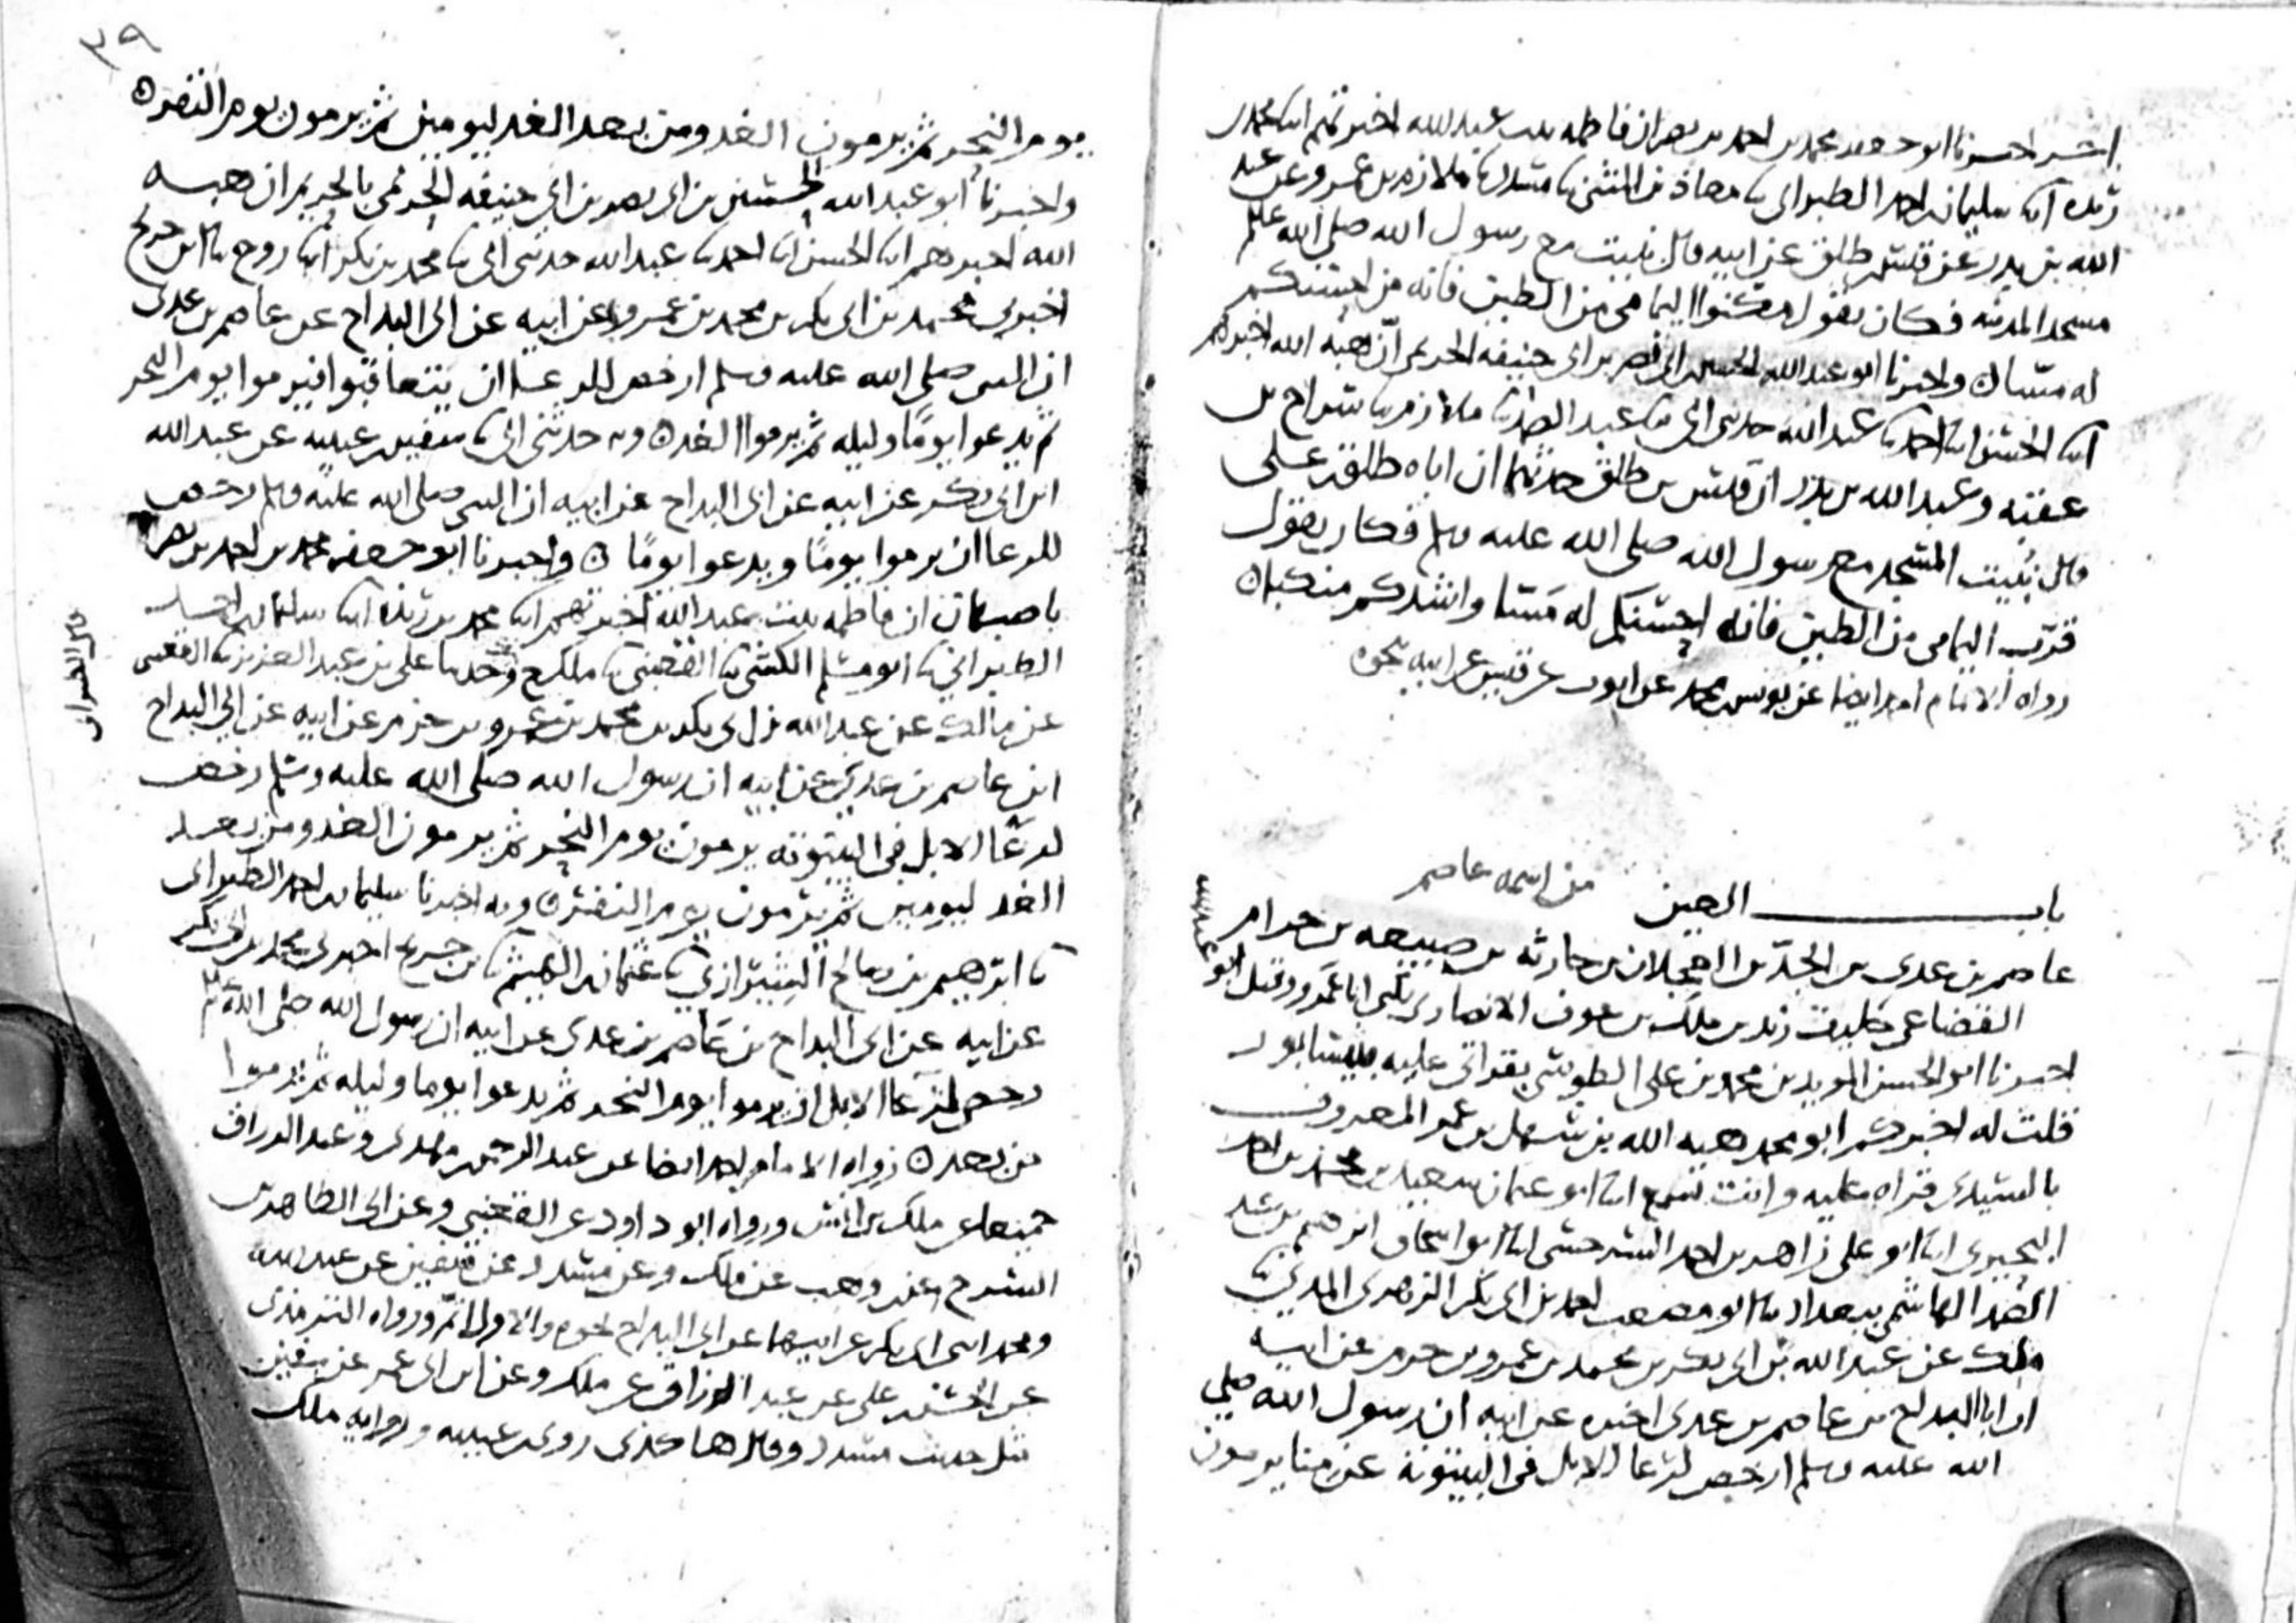 آخر اخبرنا ابو جعفر محمد بن احمد بن نصر ان فاطمه بنت عبد الله اخبرتهم ابنا محمد بن
ريذه ابنا سليمان بن احمد الطبراني ثنا معاذ بن المثنى ثنا مسدد ثنا ملازم بن عمرو عن عبد
الله بن بدر عن قيس بن طلق عن ابيه قال بنيت مع رسول الله صلى الله عليه
مسجد المدينه فكان يقول مكنوا اليمامي من الطين فانه من احسنكم
له مسا ٥ واخبرنا ابو عبد الله الحسين بن ابي نصر بن ابي حنيفه الحريمي ان هبه الله اخبرهم
ابنا الحسن ابنا احمد ثنا عبد الله حدثني ابي ثنا عبد الصمد ثنا ملازم ثنا سراج بن
عقبه وعبد الله بن بدر ان قيس بن طلق حدثهما ان اباه طلق بن علي
قال بنيت المسجد مع رسول الله صلى الله عليه وسلم فكان يقول
قرب اليمامي من الطين فانه احسنكم له مسا واشدكم منكبا ٥
رواه الامام احمد ايضا عن يونس بن محمد عن ايوب عن قيس عن ابيه نحوه
باب العين من اسمه عاصم
عاصم بن عدي بن الجد بن العجلان بن حارثه بن ضبيعه بن حرام
القضاعي حليف زيد بن ملك بن عوف الانصاري يكنى ابا عمرو وقيل ابو عبد الله
اخبرنا ابو الحسن المويد بن محمد بن علي الطوسي بقراتي عليه بنيسابور
قلت له اخبركم ابو محمد هبه الله بن سهل بن عمر المعروف
بالسيدي قراه عليه وانت تسمع ابنا ابو عثمان سعيد بن محمد بن احمد
البحيري ابنا ابو علي زاهر بن احمد السرخسي ابنا ابو اسحاق ابرهيم بن عبد
الصمد الهاشمي ببغداد ثنا ابو مصعب احمد بن ابي بكر الزهري المديني ثنا
ملك عن عبد الله بن ابي بكر بن محمد بن عمرو بن حزم عن ابيه
ان ابا البداح بن عاصم بن عدي اخبره عن ابيه ان رسول الله صلى
الله عليه وسلم ارخص لرعا الابل في البيتوتة عن منا يرمون
٣٩
يوم النحر ثم يرمون الغد ومن بعد الغد ليومين ثم يرمون يوم النفر ٥
واخبرنا ابو عبد الله الحسين بن ابي نصر بن ابي حنيفه الحريمي بالحريم ان هبه
الله اخبرهم ابنا الحسن ابنا احمد ثنا عبد الله حدثني ابي ثنا محمد بن بكر ابنا روح ثنا ابن جريج
اخبرني محمد بن ابي بكر بن محمد بن عمرو عن ابيه عن ابي البداح عن عاصم بن عدي
ان النبي صلى الله عليه وسلم ارخص للرعا ان يتعاقبوا فيرموا يوم النحر
ثم يدعوا يوما وليله ثم يرموا الغد ٥ وبه حدثني ابي ثنا سفين بن عيينه عن عبد الله
ابن ابي بكر عن ابيه عن ابي البداح عن ابيه ان النبي صلى الله عليه وسلم رخص
للرعا ان يرموا يوما ويدعوا يوما ٥ واخبرنا ابو جعفر محمد بن احمد بن نصر
باصبهان ان فاطمه بنت عبد الله اخبرتهم ابنا محمد بن ريذه ابنا سليمان بن احمد
الطبراني ثنا ابو مسلم الكشي ثنا القعنبي ثنا ملك ح وحدثنا علي بن عبد العزيز ثنا القعنبي
قال الطبراني
عن مالك عن عبد الله بن ابي بكر بن محمد بن عمرو بن حزم عن ابيه عن ابي البداح
ابن عاصم بن عدي عن ابيه ان رسول الله صلى الله عليه وسلم رخص
لرعا الابل في البيتوته يرمون يوم النحر ثم يرمون الغد ومن بعد
الغد ليومين ثم يرمون يوم النفر ٥ وبه اخبرنا سليمان بن احمد الطبراني
ثنا ابرهيم بن صالح الشيرازي ثنا عثمان بن الهيثم ثنا ابن جريج اخبرني محمد بن ابي بكر
عن ابيه عن ابي البداح بن عاصم بن عدي عن ابيه ان رسول الله صلى الله عليه
رخص لرعا الابل ان يرموا يوم النحر ثم يدعوا يوما وليله ثم يرموا
من بعد ٥ رواه الامام احمد ايضا عن عبد الرحمن بن مهدي وعبد الرزاق
جميعا عن ملك بن انس ورواه ابو داود عن القعنبي وعن ابي الطاهر بن
السرح عن وهب عن ملك وعن مسدد عن سفين عن عبد الله
ومحمد ابني ابي بكر عن ابيهما عن ابي البداح نحوه والاول اتم ورواه الترمذي
عن الحسن بن علي عن عبد الرزاق عن ملك وعن ابن ابي عمر عن سفين
مثل حديث مسدد وقال هكذى روى ابن عيينه ورواية ملك